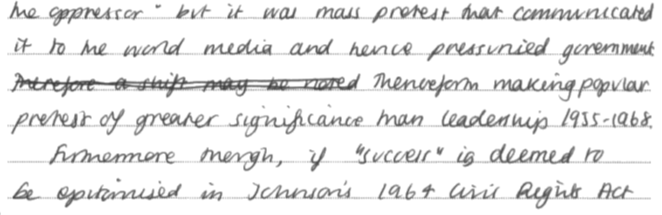 the oppressor" but it was mass protest that communicated
it to the world media and hence pressuried government
Therefore a shift may be noted Thenceform making popular
protest of greater significance than leadership 1955-1968.
Furthermore though, if "success" is deemed to
be epitomised in Johnson's 1964 Civil Rights Act